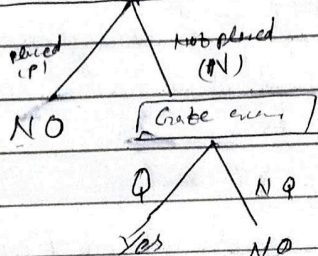 placed Not placed
(P) (N)
NO Gate exam
Q NQ
Yes NO